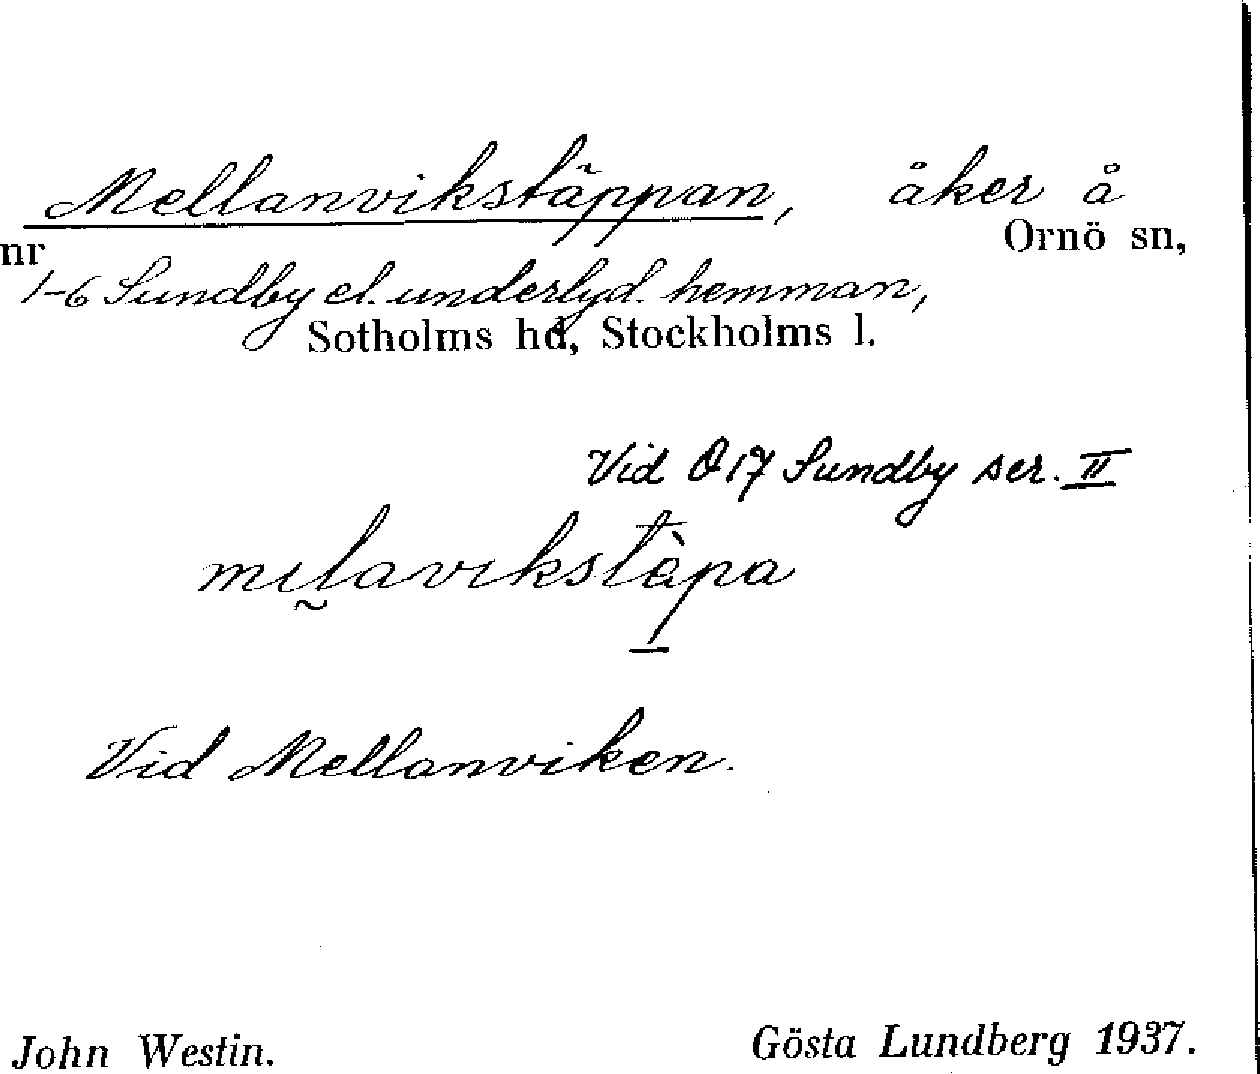 Mellanvikstäppan, åker å
Ornö sn,
nr
1-6 Sundby el. underlyd. hemman,
Sotholms hd, Stockholms l.
Vid Ö 17 Sundby ser. II
Vid Mellanviken.
John Westin. Gösta Lundberg 1937.